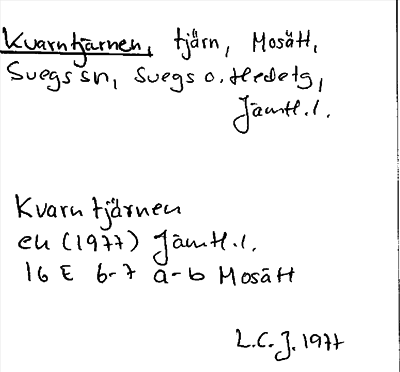 Kvarntjärnen, tjärn, Mosätt,
Svegs sn, Svegs o. Hedetg,
Jämtl. l.
Kvarntjärnen
ek (1977) Jämtl. l.
16 E 6-7 a-b Mosätt
L.C.J. 1977